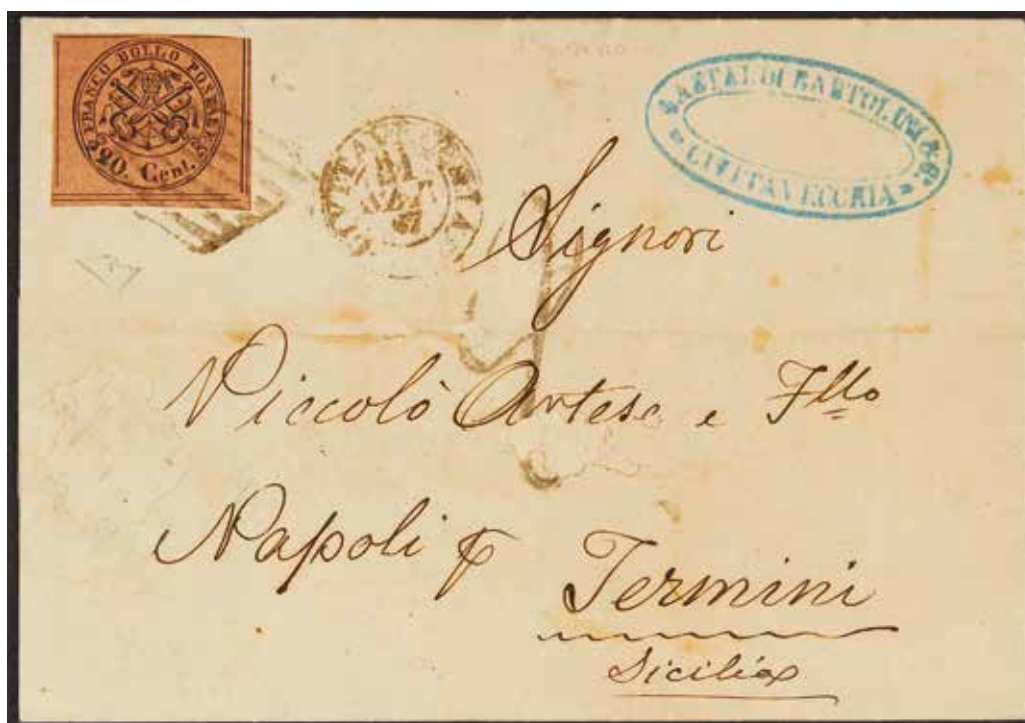 FRANCO BOLLO POSTALE
20. Cent.
CIVITAVECCHIA
67
CIVITAVECCHIA
Signori
Niccolò Artese e Fllo
Napoli p
Termini
Sicilia